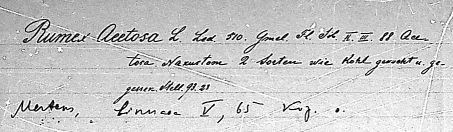 Rumex Acetosa L. Led. 510. Gmel. Fl. Sib. III. 88 Ace-
tosa 2 Sorten wie Kohl gekocht u. ge-
gessen Stell. 93.
Mertens, Linnaea V, 65